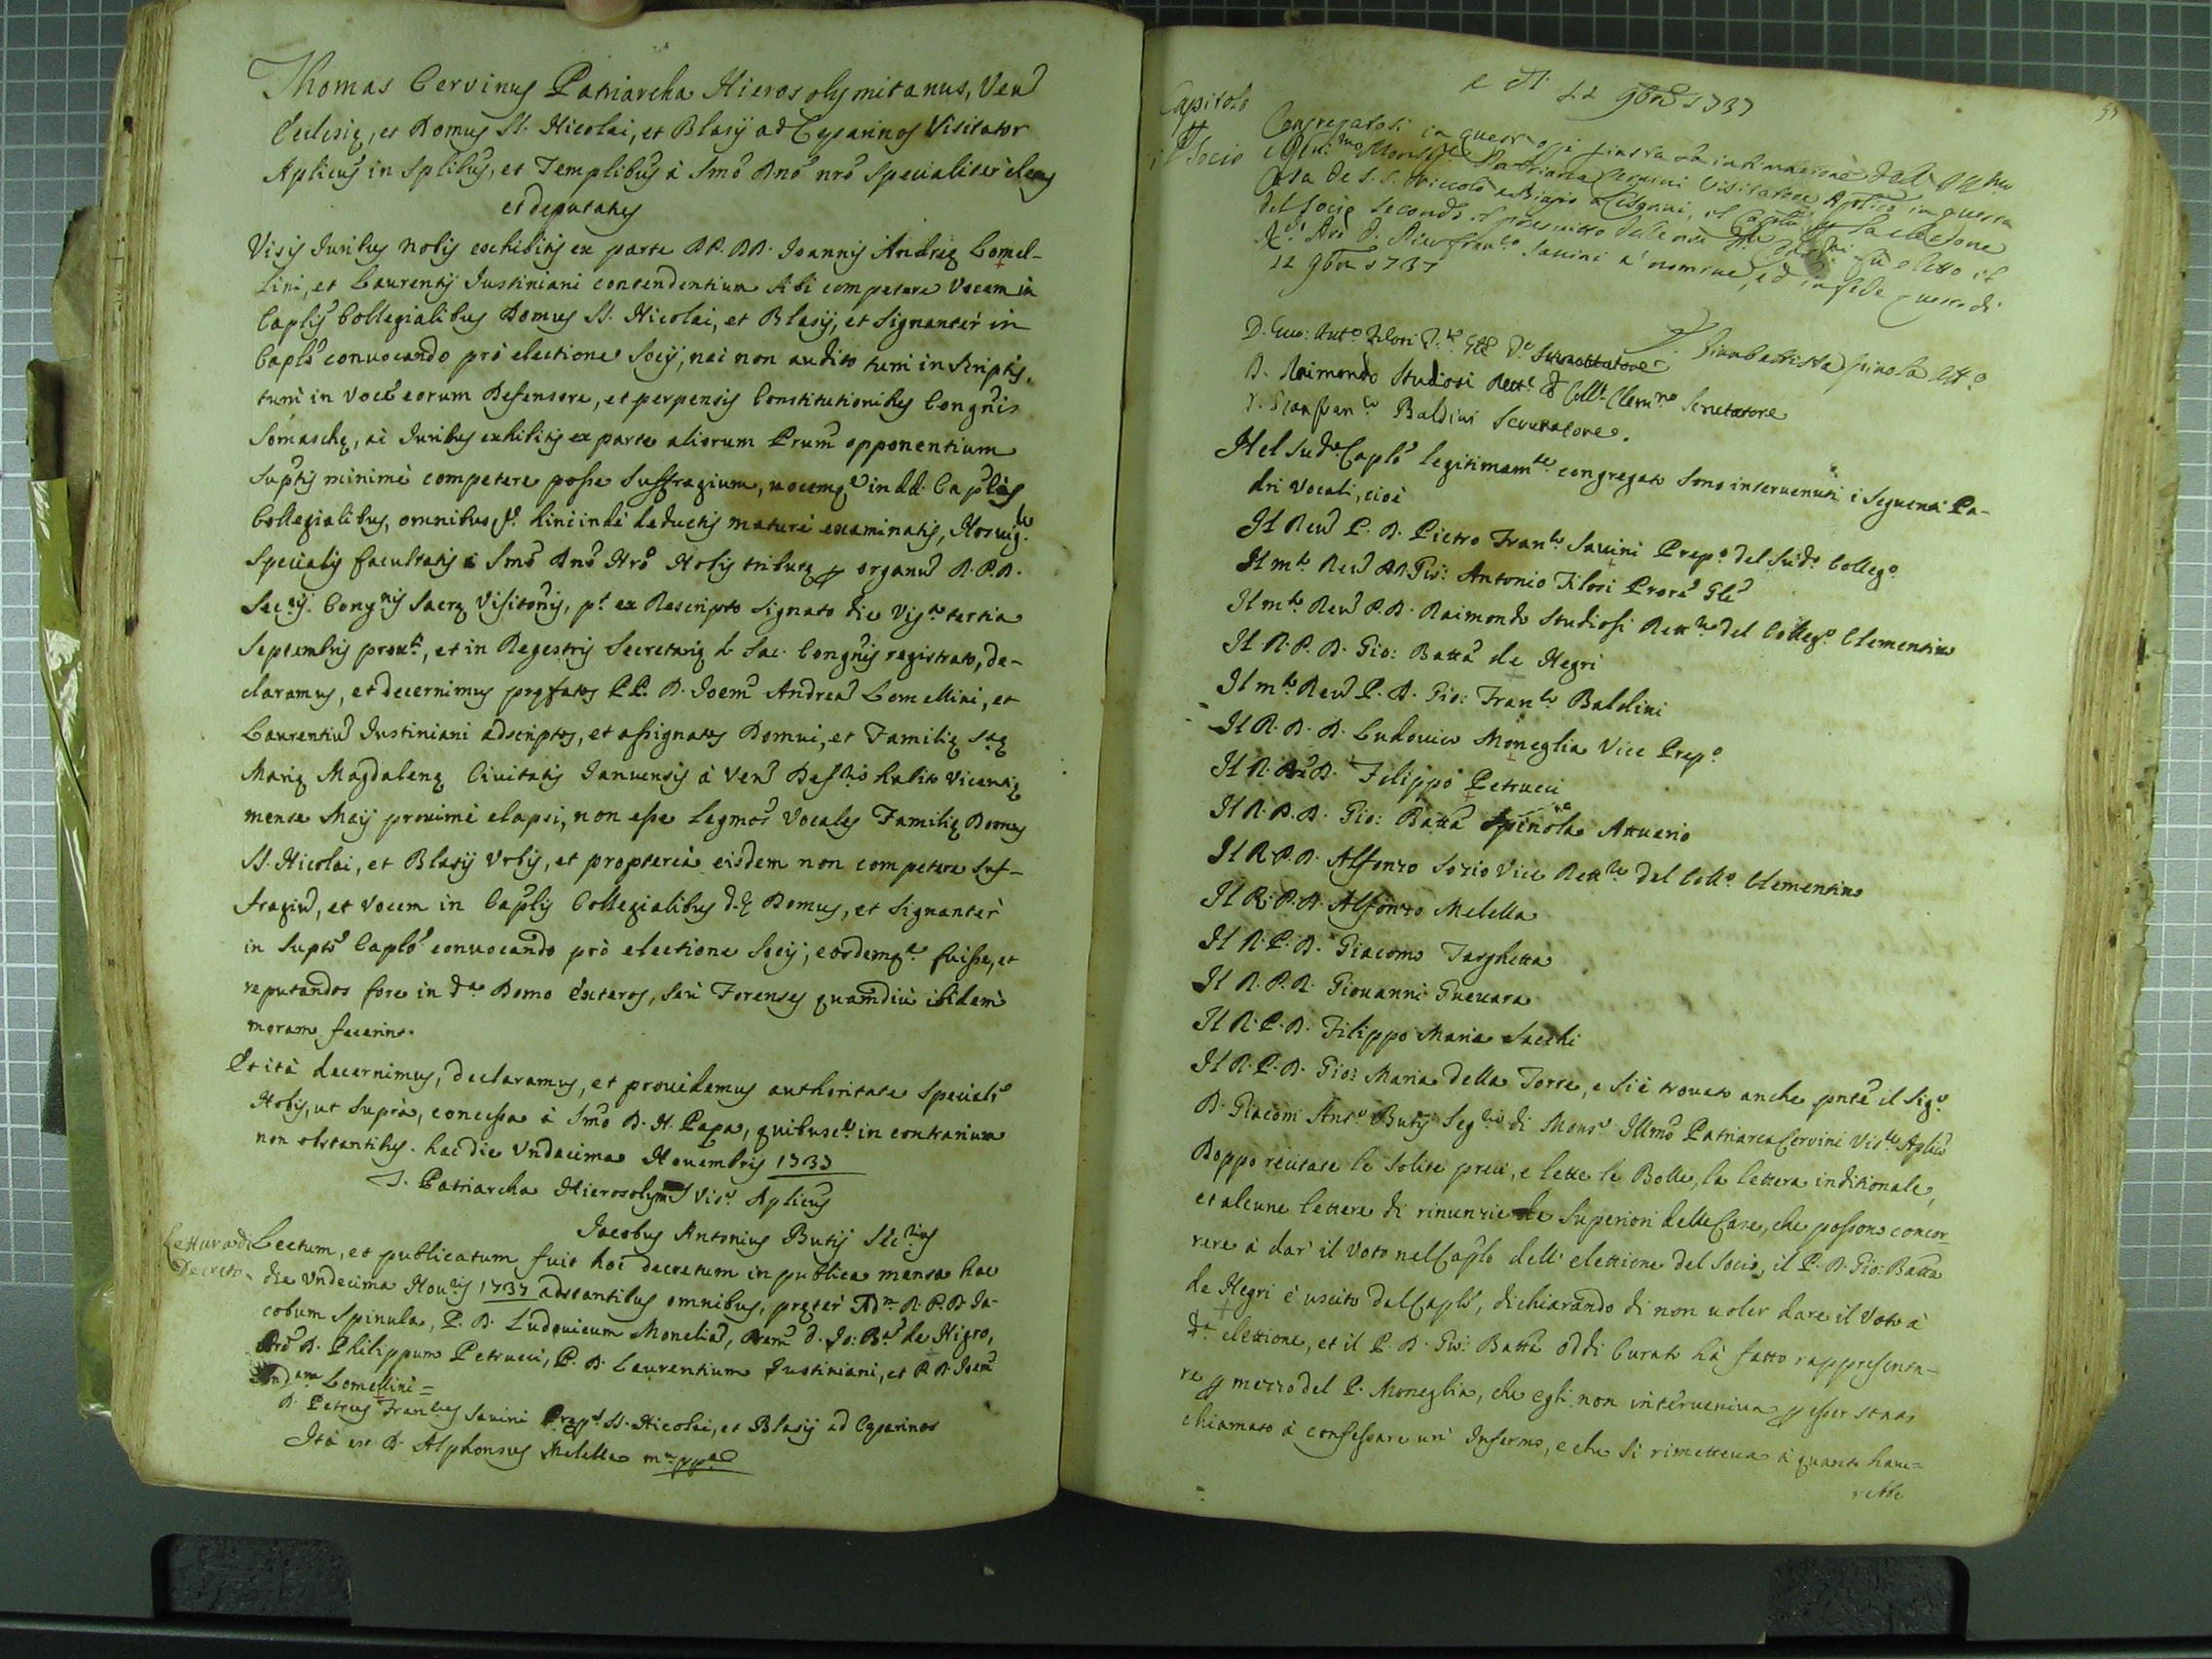 Thomas Cervinus Patriarcha Hierosolymitanus, Ven
Eccleisię, et Domus SS. Nicolai, et Blasij ad Cęsarinos Visitator
Aplicus in Splibus, et Templibus à Smo Dno nro Specialiter eleus
et deputatus
Visis Juribus nobis exhibitis ex parte PP. DD. Joannis Andrię Lomel-
lini, et Laurentij Justiniani contendentium sibi competere Vocem in
Caplis Collegialibus Domus SS. Nicolai, et Blasij, et signanter in
Caplo convocando prò electione Socij, nec non audito tum in scriptis,
tum in voce eorum Defensore, et perpensis Constitutionibus Congnis
Somaschę, ac Juribus exhibitis ex parte aliorum Prum opponentium
suptis minimè competere posse suffragium, vocemqe in dd. Caplis
Collegialibus, omnibus hinc inde deductis maturè examinatis,
Specialis facultatis à Smo Dno Nro Nobis tributę organu R.P.D.
Secrij. Congnis Sacrę Visitonis, pt ex Rescripto signato die Vigma tertia
Septembris proxti, et in Regestris Secretarię d. Sac. Congnis registrato, de-
claramus, et decernimus pręfatos PP. D. Joem Andrea Lomellini, et
Laurentiu Justiniani adscriptos, et assignatos Domui, et Familię Stę
Marię Magdalenę Civitatis Januensis à Ven habito Vicentię
mense Maij proximè elapsi, non esse legmos Vocales Familię Domus
SS. Nicolai, et Blasij Urbis, et proptereà eisdem non competere suf-
fragiu, et vocem in Caplis Collegialibus d.ę Domus, et signanter
in supto Caplo convocando prò electione Socij, eosdemqe fuisse, et
reputandos fore in da Domo exteros, seu Forenses quamdiù ibidem
moram fecerint.
Et ità decernimus, declaramus, et providemus authoritate speciali
Nobis, ut suprà, concessa à Smo D. N. Papa, quibuscu in contrarium
non obstantibus. hac die Undecima Novembris 1737
T. Patriarcha Hierosolyms Visr Aplicus
Jacobus Antonius Butij Secrius
Lettura di Decreto
Lectum, et publicatum fuit hoc decretum in publica mensa hac
die Undecima Novris 1737 adstantibus omnibus, pręter Adm R.P.D. Ja-
cobum Spinula, P. D. Ludovicum Monelia, Prem D. Jo: Bta de Nigro,
D. Philippum Petrucci, P. D. Laurentium Justiniani, et P. D. Joem
Andream Lomellini =
D. Petrus Francus Savini Pręps SS. Nicolai, et Blasij ad Cęsarinos
Ità est D. Alphonsus Melella mu ppa
55
A dì 12 9bre 1737
Capitolo
p il Socio
Congregatosi in questo giusta la intimazione dell' Illmo
e Revmo Monsigr Patriarca Cervini Visitatore Apolico in questa
Casa de S.S. Niccolò e Biagio a Cesarini, il Caplo p la elezione
del Socio secondo il prescritto delle nre fù eletto il
D. Pier Franco Savini a nomine, ed in fede questo dì
12 9bre 1737
Gianbattista Spinola Atto
D. Gio: Anto Filori Pre Gle
D. Raimondo Studiosi Rettre d Colle Clemno Scrutatore
D. Gianfranco Baldini Scrutatore.
Nel sudo Caplo legitimamte congregato sono intervenuti i seguenti Pa-
dri Vocali, cioè
Il Revd P. D. Pietro Franco Savini Prepo del sudo Collego
Il mto Rev P.D. Gio: Antonio Filori Procre Gle
Il mto Rev P. D. Raimondo Studiosi Rettre del Collego Clementino
Il R. P. D. Gio: Batta de Negri
Il mto Rev P. D. Gio: Franco Baldini
Il R. P. D. Ludovico Moneglia Vice Prepo
Il R. P. D. Filippo Petrucci
Il R. P. D. Gio: Batta Spinola Attuario
Il R. P. D. Alfonzo Sozio Vice Rettre del Collo Clementino
Il R. P. D. Alfonzo Melella
Il R. P. D. Giacomo Targhetta
Il R. P. D. Giovanni Guevara
Il R. P. D. Filippo Maria Sacchi
Il R. P. D. Gio: Maria della Torre, e si è trovato anche pnte il Sigr
D. Giacom Anto Butij Segrio di Monsr Illmo Patriarca Cervini Visre Aplico
Doppo recitate le solite preci, e lette le Bolle, la lettera inditionale,
et alcune lettere di rinunzie de Superiori delle Case, che possono concor
rere à dar' il Voto nel Caplo dell' elettione del Socio, il P. D. Gio: Batta
de Negri è uscito dal Caplo, dichiarando di non voler dare il Voto à
da elettione, et il P. D. Gio: Batta Oddi Curato hà fatto rappresenta-
re p mezzo del P. Moneglia, che egli non interveniva p esser stato
chiamato à confessare un' Infermo, e che si rimetteva à quanto have=
rebbe